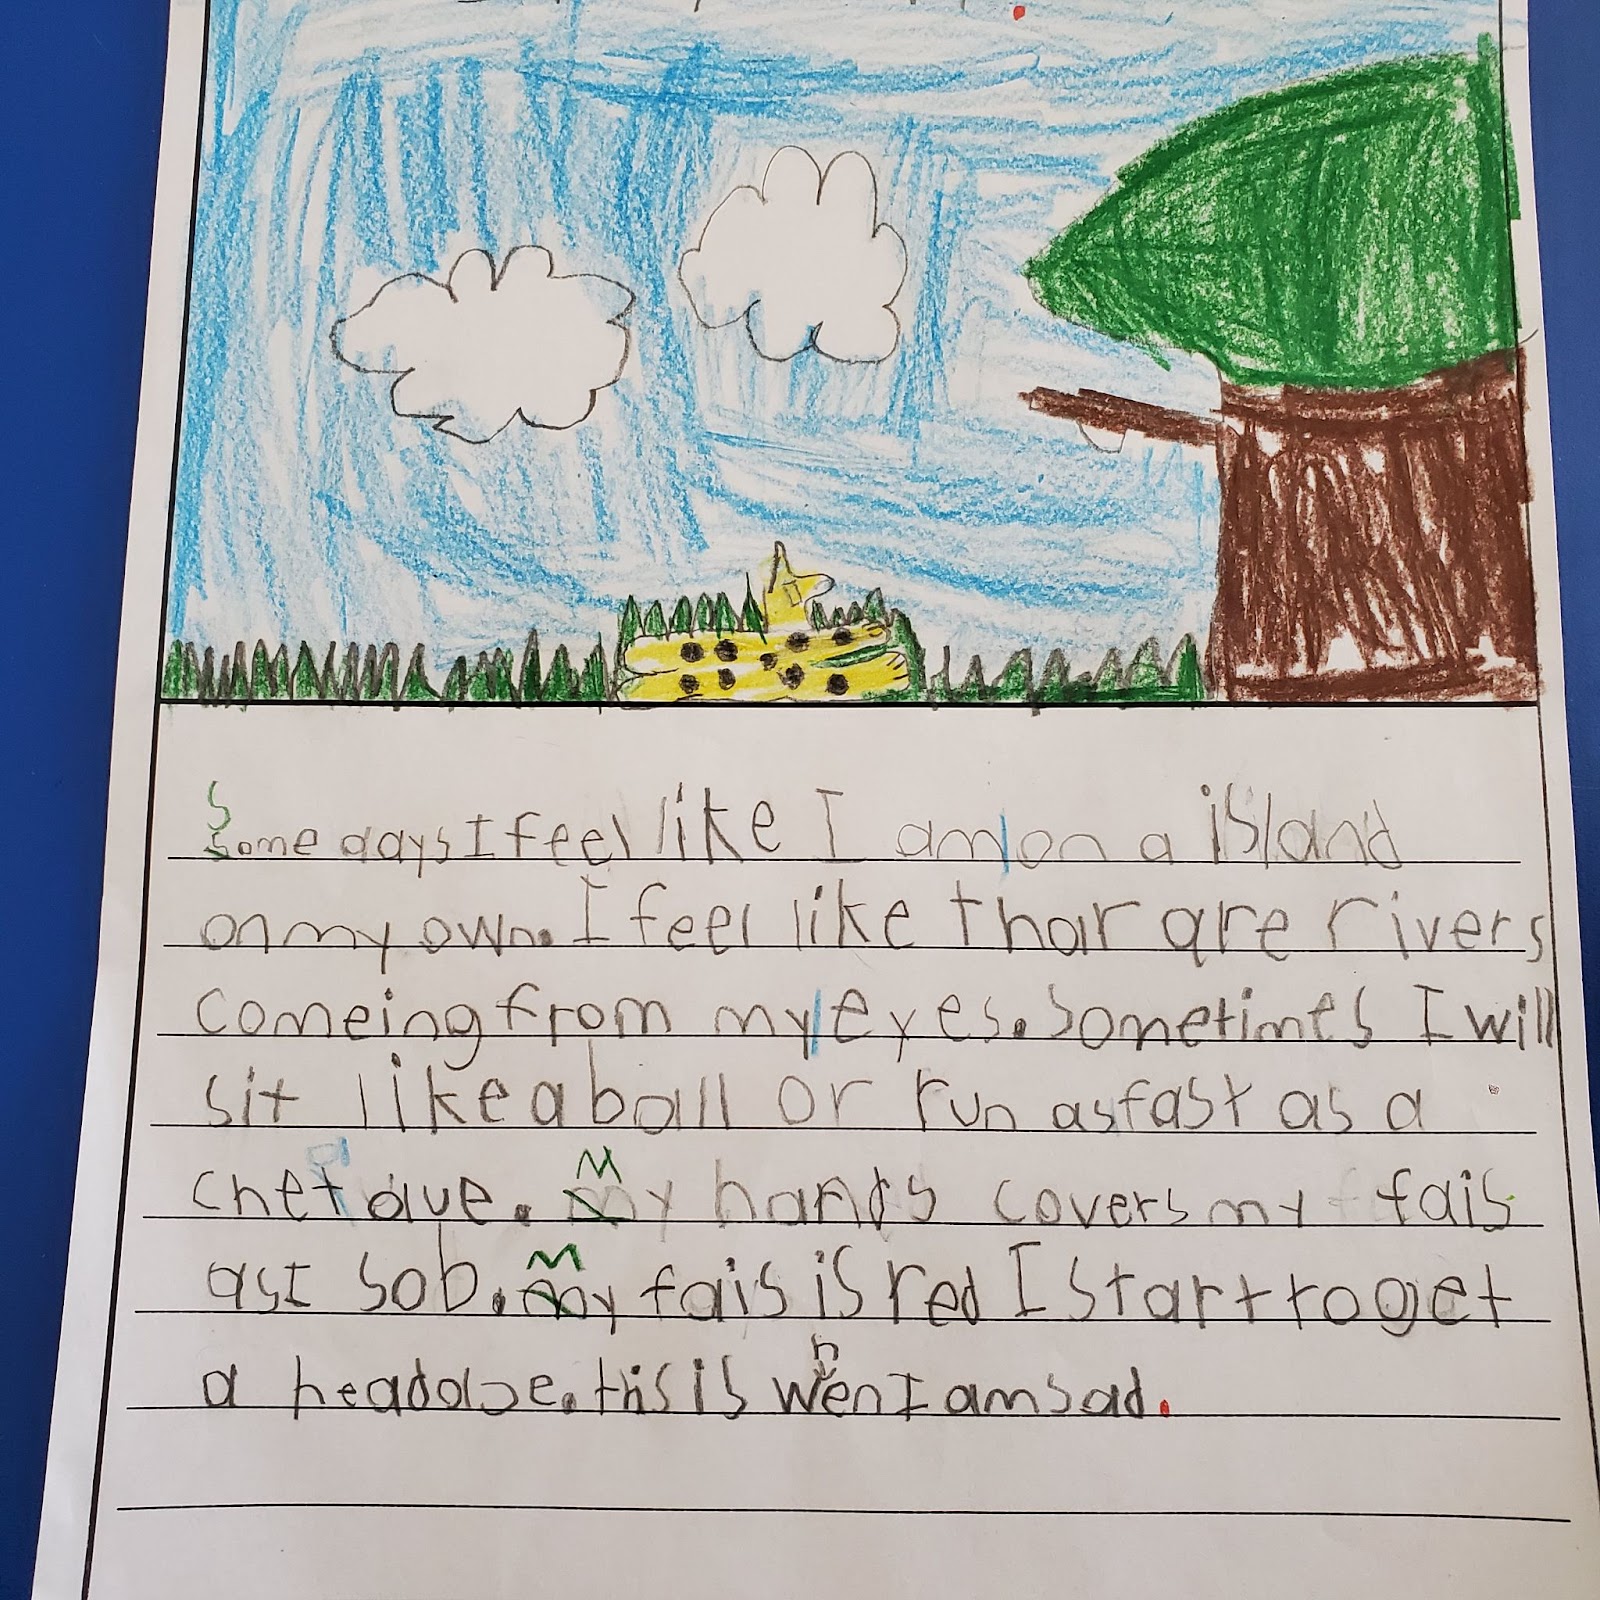 Some days I feel like I am on a island
on my own. I feel like thar are rivers
comeing from my eyes. sometimes I will
sit like a ball or run as fast as a
chetave. My hands covers my fais
as I sob. My fais is red I start to get
a headace. this is when I am sad.